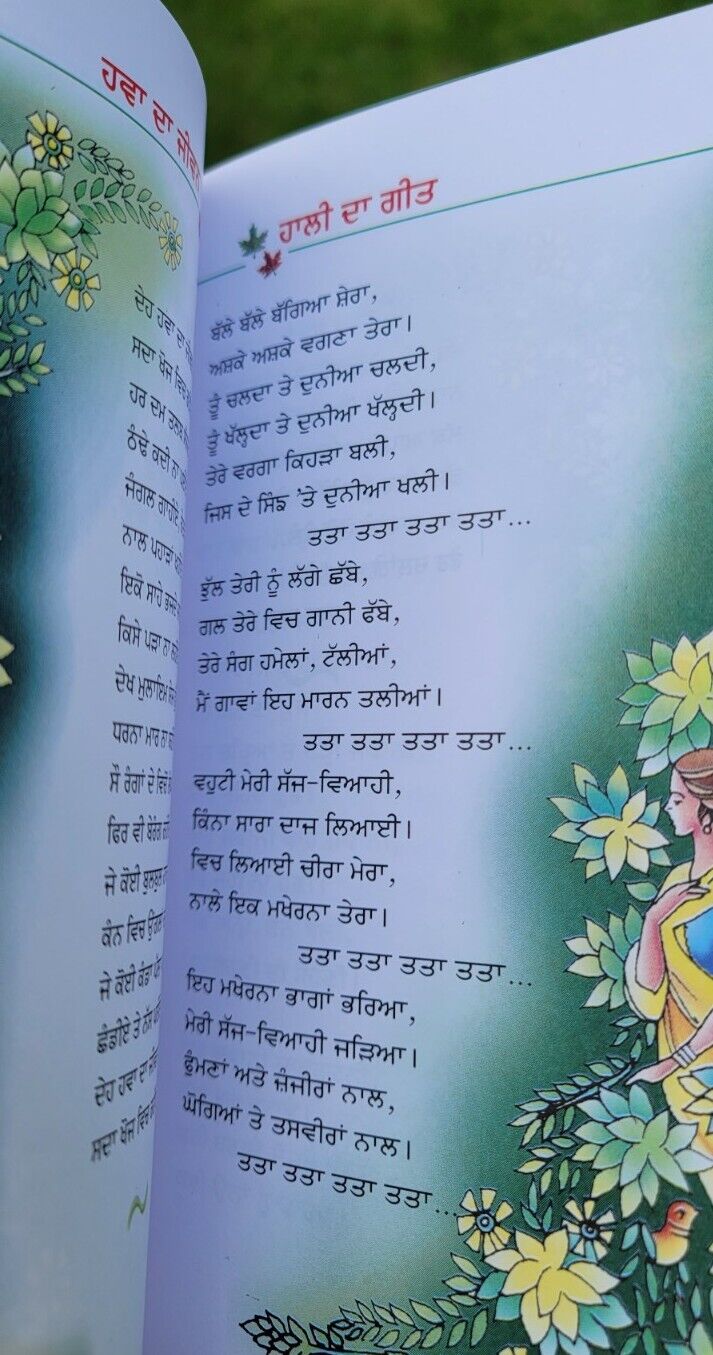 ਹਵਾ ਦਾ
ਦੇਹ ਹਵਾ ਦਾ
ਸਦਾ ਖੋਜ ਵਿਚ
ਹਰ ਦਮ
ਠੰਢੇ ਕਦੀ ਨਾ
ਜੰਗਲ ਗਾਹੀਏ
ਨਾਲ ਪਹਾੜਾਂ
ਇਕੋ ਸਾਹੇ
ਕਿਸੇ ਪੜਾ ਨਾ
ਦੇਖ ਮੁਲਾਇਮ
ਧਰਨਾ ਮਾਰ ਨਾ
ਸੌ ਰੰਗਾਂ ਦੇ ਵਿਚੋਂ
ਫਿਰ ਵੀ ਬੇਰੰਗ
ਜੇ ਕੋਈ ਬੁਲਬੁਲ
ਕੰਨ ਵਿਚ
ਜੇ ਕੋਈ ਕੰਡਾ
ਛੰਡੀਏ ਤੇ ਨੱਸ
ਦੇਹ ਹਵਾ ਦਾ
ਸਦਾ ਖੋਜ ਵਿਚ
ਹਾਲੀ ਦਾ ਗੀਤ
ਬੱਲੇ ਬੱਲੇ ਬੱਗਿਆ ਸ਼ੇਰਾ,
ਅਸ਼ਕੇ ਅਸ਼ਕੇ ਵਗਣਾ ਤੇਰਾ।
ਤੂੰ ਚਲਦਾ ਤੇ ਦੁਨੀਆ ਚਲਦੀ,
ਤੂੰ ਖੱਲ੍ਹਦਾ ਤੇ ਦੁਨੀਆ ਖੱਲ੍ਹਦੀ।
ਤੇਰੇ ਵਰਗਾ ਕਿਹੜਾ ਬਲੀ,
ਜਿਸ ਦੇ ਸਿੰਙ 'ਤੇ ਦੁਨੀਆ ਖਲੀ।
ਤਤਾ ਤਤਾ ਤਤਾ ਤਤਾ...
ਝੁੱਲ ਤੇਰੀ ਨੂੰ ਲੱਗੇ ਛੱਬੇ,
ਗਲ ਤੇਰੇ ਵਿਚ ਗਾਨੀ ਫੱਬੇ,
ਤੇਰੇ ਸੰਗ ਹਮੇਲਾਂ, ਟੱਲੀਆਂ,
ਮੈਂ ਗਾਵਾਂ ਇਹ ਮਾਰਨ ਤਲੀਆਂ।
ਤਤਾ ਤਤਾ ਤਤਾ ਤਤਾ...
ਵਹੁਟੀ ਮੇਰੀ ਸੱਜ-ਵਿਆਹੀ,
ਕਿੰਨਾ ਸਾਰਾ ਦਾਜ ਲਿਆਈ।
ਵਿਚ ਲਿਆਈ ਚੀਰਾ ਮੇਰਾ,
ਨਾਲੇ ਇਕ ਮਖੇਰਨਾ ਤੇਰਾ।
ਤਤਾ ਤਤਾ ਤਤਾ ਤਤਾ...
ਇਹ ਮਖੇਰਨਾ ਭਾਗਾਂ ਭਰਿਆ,
ਮੇਰੀ ਸੱਜ-ਵਿਆਹੀ ਜੜਿਆ।
ਫੁੰਮਣਾਂ ਅਤੇ ਜ਼ੰਜੀਰਾਂ ਨਾਲ,
ਘੋਗਿਆਂ ਤੇ ਤਸਵੀਰਾਂ ਨਾਲ।
ਤਤਾ ਤਤਾ ਤਤਾ ਤਤਾ...